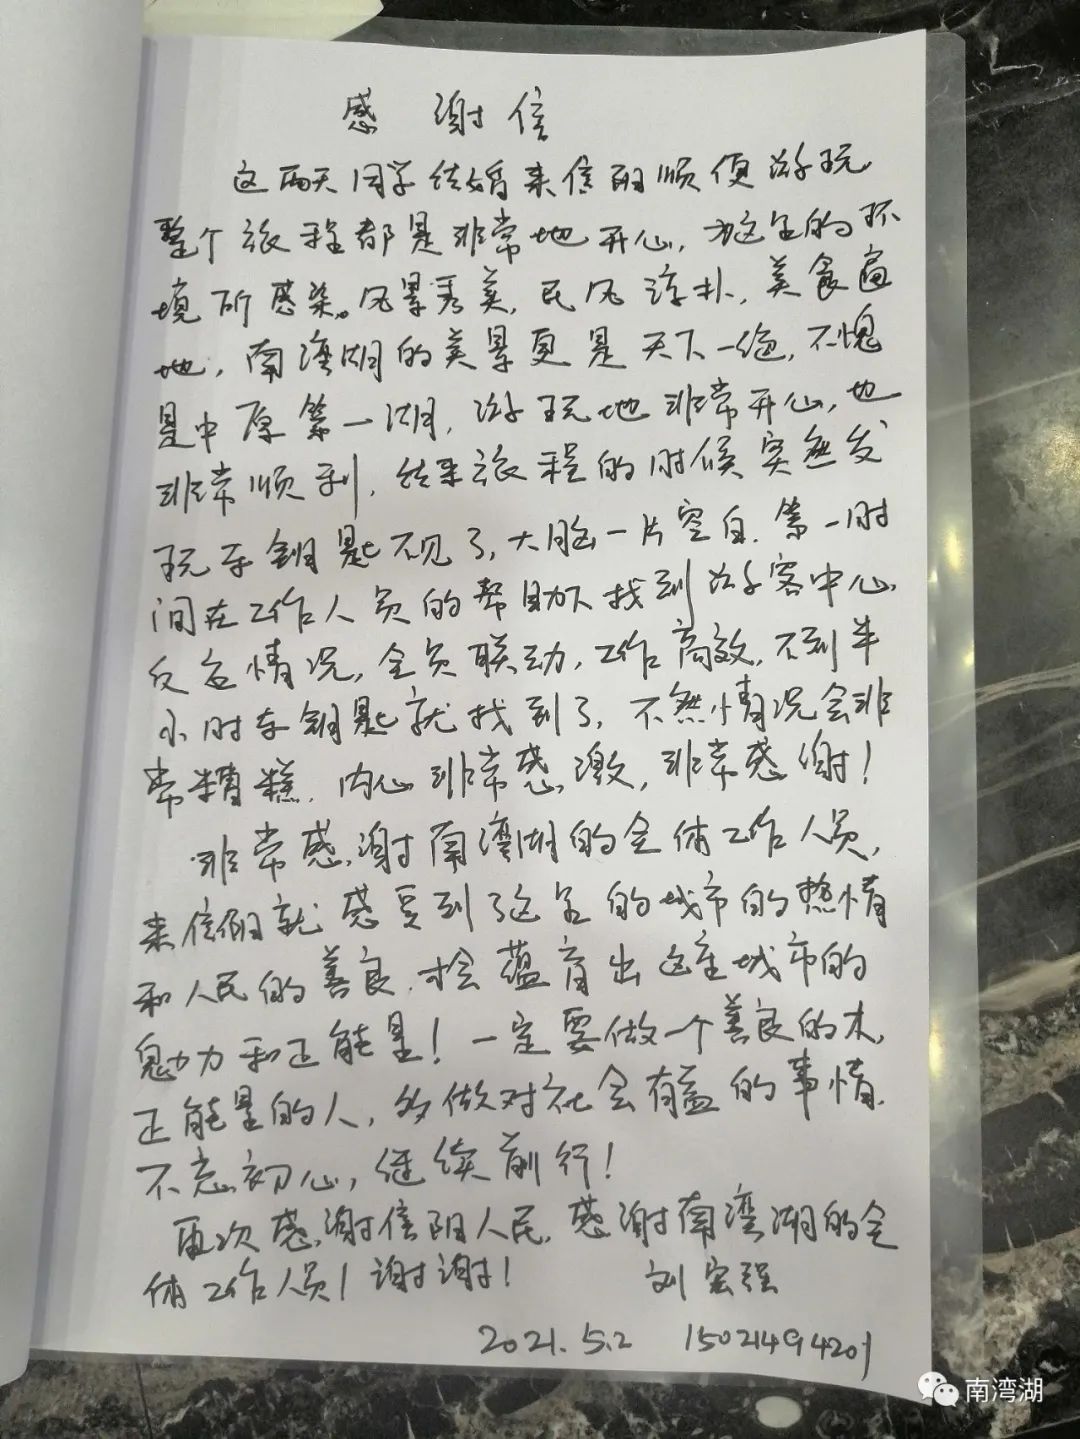 感 谢 信
这两天同学结婚来信阳顺便游玩
整个旅程都是非常地开心,被这里的环
境所感染。风景秀美,民风淳朴,美食遍
地,南湾湖的美景更是天下一绝,不愧
是中原第一湖,游玩地非常开心,也
非常顺利,结束旅程的时候突然发
现车钥匙不见了,大脑一片空白.第一时
间在工作人员的帮助下找到游客中心
反应情况,全员联动,工作高效,不到半
小时车钥匙就找到了,不然情况会非
常糟糕.内心非常感激,非常感谢!
非常感谢南湾湖的全体工作人员,
来信阳就感受到了这里的城市的热情
和人民的善良.才会蕴育出这座城市的
魅力和正能量!一定要做一个善良的人,
正能量的人,多做对社会有益的事情.
不忘初心,继续前行!
再次感谢信阳人民,感谢南湾湖的全
体工作人员!谢谢! 刘宏强
2021.5.2 15021494201
南湾湖